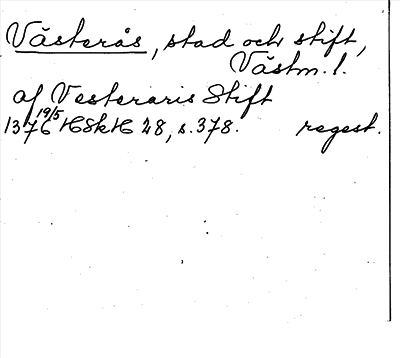 Västerås, stad och stift,
Västm. l.
af Vesteraris Stift
1376 19/5 HSkH 28, s. 378. regest.